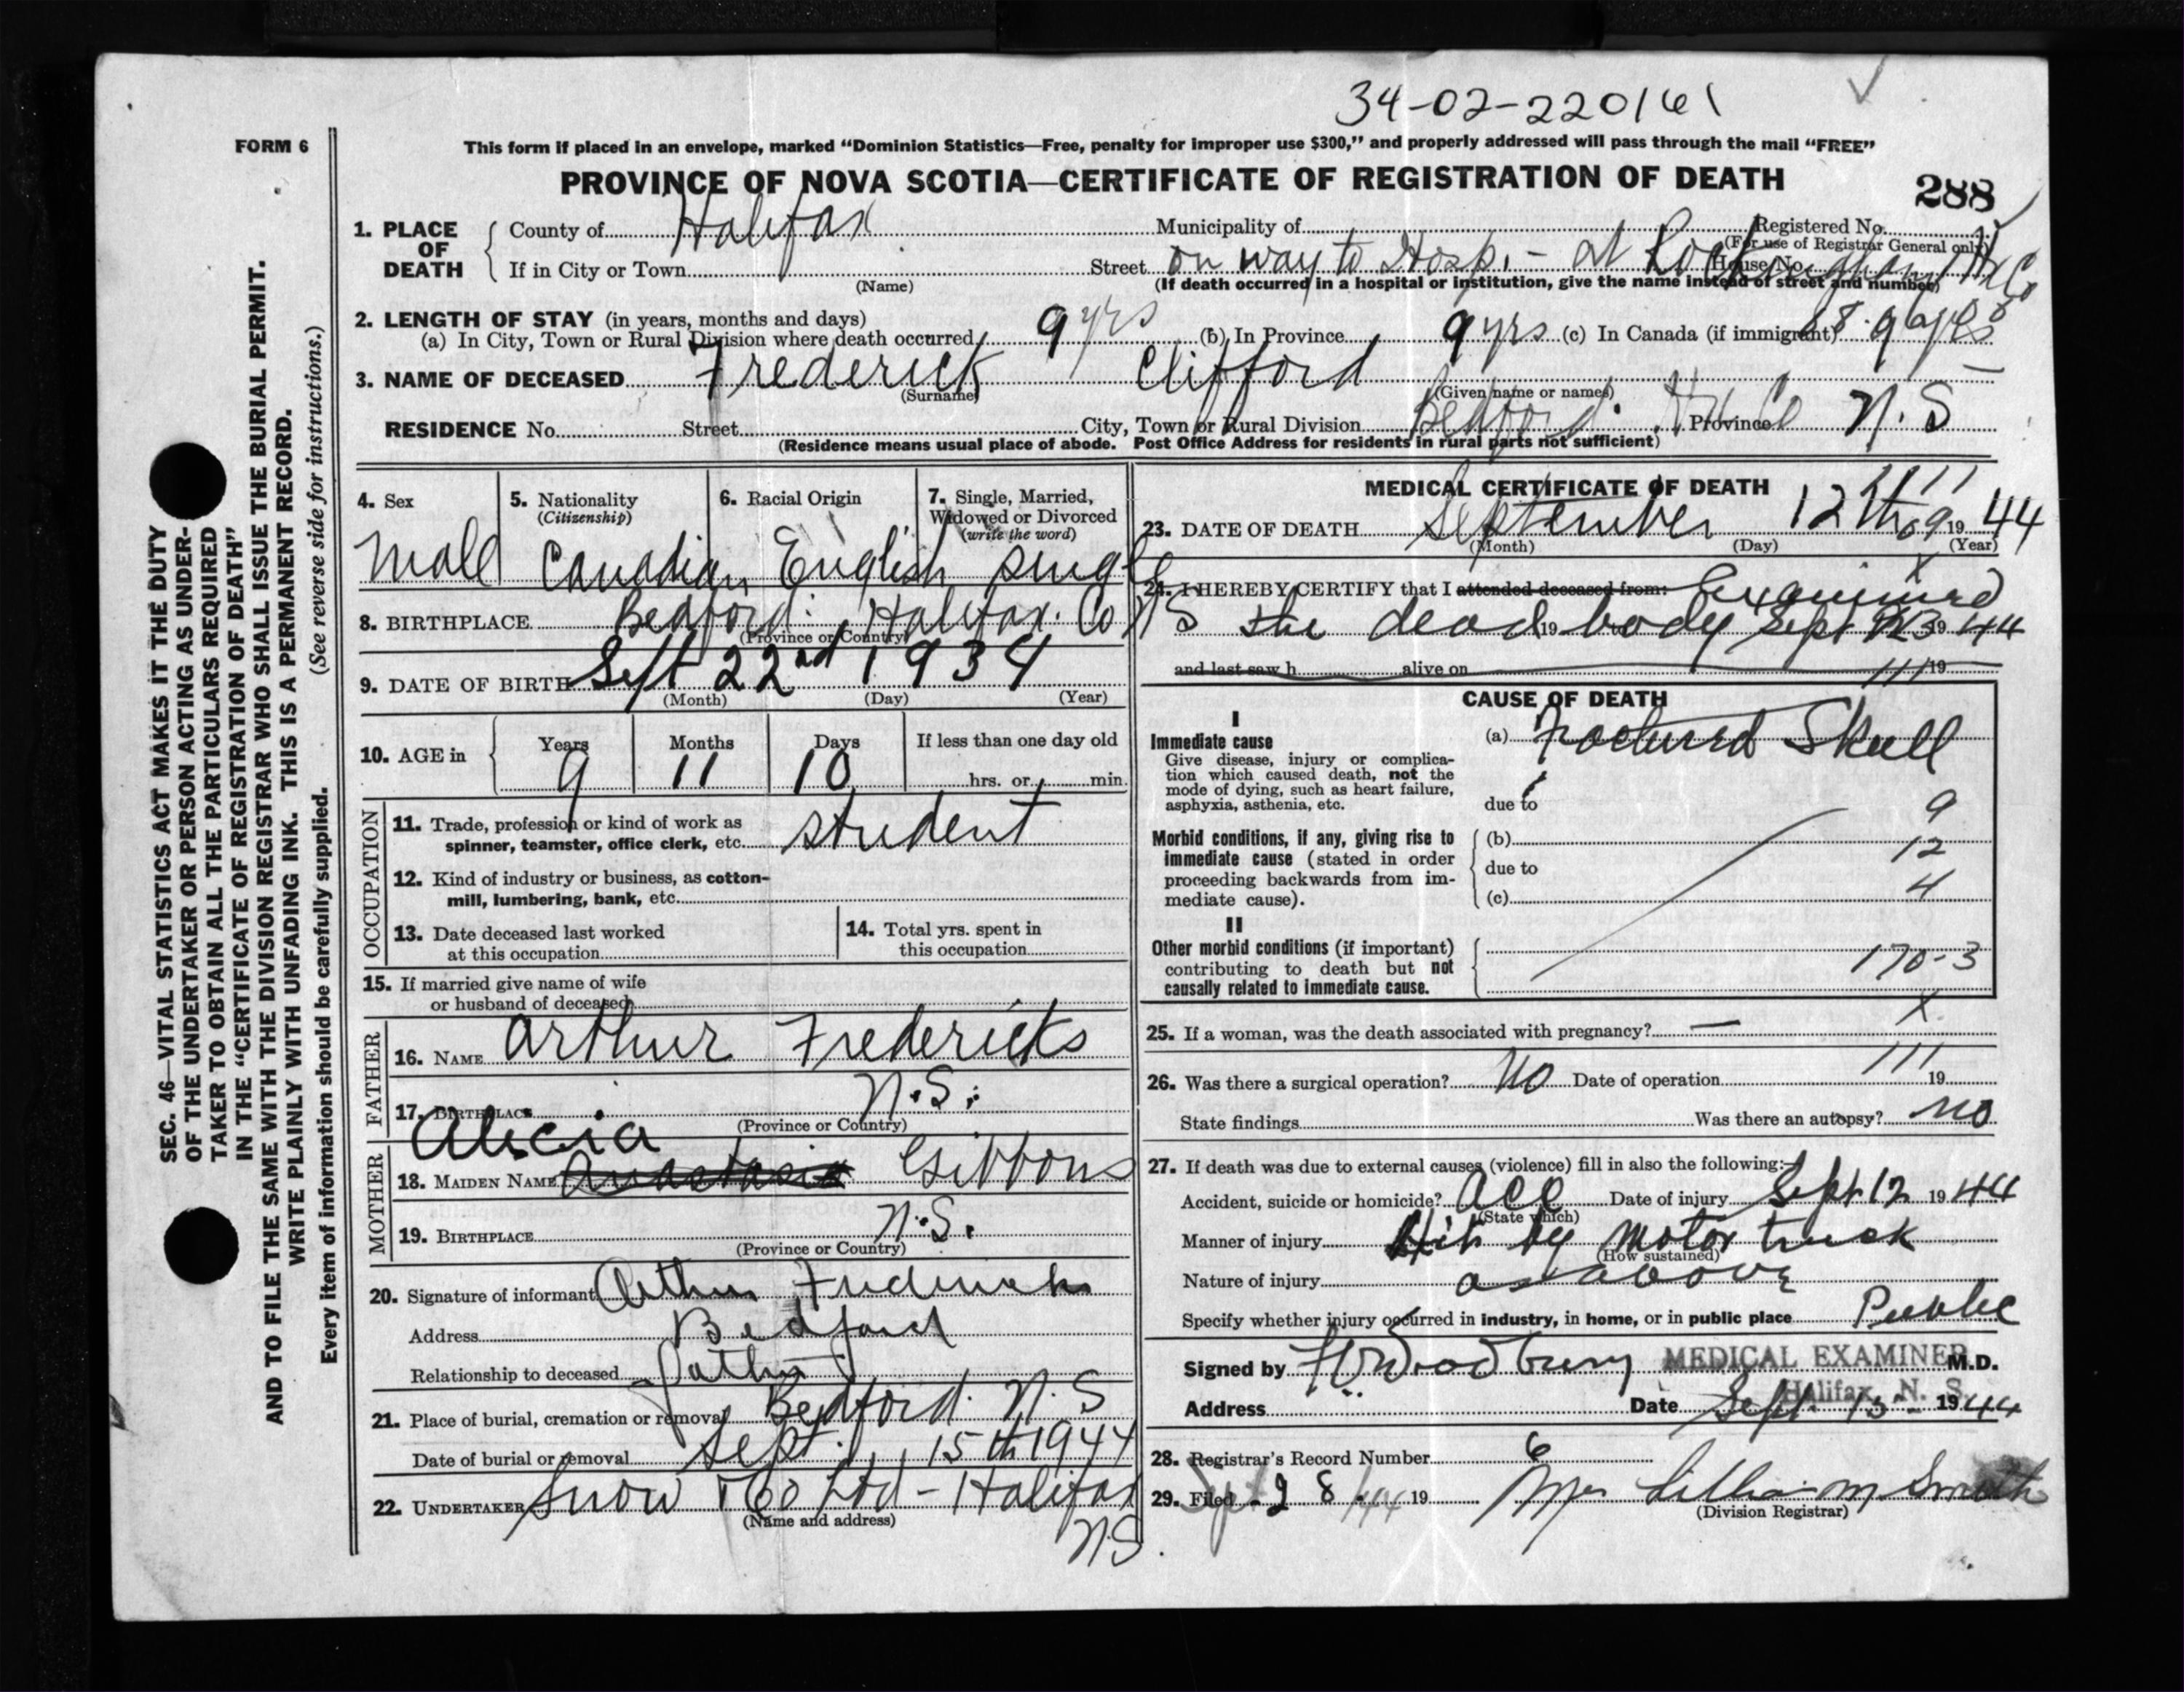 34-02-220161
FORM 6
This form if placed in an envelope, marked "Dominion Statistics—Free, penalty for improper use $300," and properly addressed will pass through the mail "FREE"
PROVINCE OF NOVA SCOTIA—CERTIFICATE OF REGISTRATION OF DEATH
288
1. PLACE OF DEATH { County of Halifax Municipality of Registered No.
(For use of Registrar General only)
If in City or Town Street on way to Hosp. - at Rockingham Hx Co House No.
(Name) (If death occurred in a hospital or institution, give the name instead of street and number)
2. LENGTH OF STAY (in years, months and days)
(a) In City, Town or Rural Division where death occurred 9 yrs (b) In Province 9 yrs (c) In Canada (if immigrant)
3. NAME OF DECEASED Frederick Clifford
(Surname) (Given name or names)
RESIDENCE No. Street City, Town or Rural Division Bedford. Hx Co Province N. S
(Residence means usual place of abode. Post Office Address for residents in rural parts not sufficient)
4. Sex Male
5. Nationality (Citizenship) Canadian
6. Racial Origin English
7. Single, Married, Widowed or Divorced (write the word) single
8. BIRTHPLACE Bedford. Halifax. Co N S
(Province or Country)
9. DATE OF BIRTH Sept 22nd 1934
(Month) (Day) (Year)
10. AGE in { Years 9 Months 11 Days 10 If less than one day old
hrs. or min.
OCCUPATION
11. Trade, profession or kind of work as spinner, teamster, office clerk, etc. student
12. Kind of industry or business, as cotton-mill, lumbering, bank, etc.
13. Date deceased last worked at this occupation
14. Total yrs. spent in this occupation
15. If married give name of wife or husband of deceased
FATHER
16. NAME Arthur Fredericks
17. BIRTHPLACE N.S.
(Province or Country)
MOTHER
Alicia
18. MAIDEN NAME Anastasia Gibbons
19. BIRTHPLACE N.S.
(Province or Country)
20. Signature of informant Arthur Fredericks
Address Bedford
Relationship to deceased Father
21. Place of burial, cremation or removal Bedford. N. S
Date of burial or removal Sept. 15th 1944
22. UNDERTAKER Snow & Co Ltd - Halifax
(Name and address)
N.S.
MEDICAL CERTIFICATE OF DEATH
23. DATE OF DEATH September 12th 09 1944
(Month) (Day) (Year)
24. I HEREBY CERTIFY that I attended deceased from: Examined
the dead 19 body Sept 13 1944
and last saw h alive on 19
CAUSE OF DEATH
I
Immediate cause
Give disease, injury or complication which caused death, not the mode of dying, such as heart failure, asphyxia, asthenia, etc.
(a) Fractured Skull
due to
9
Morbid conditions, if any, giving rise to immediate cause (stated in order proceeding backwards from immediate cause).
(b) 12
due to
(c) 4
II
Other morbid conditions (if important) contributing to death but not causally related to immediate cause.
170-3
X
25. If a woman, was the death associated with pregnancy? —
26. Was there a surgical operation? No Date of operation 111 19
State findings Was there an autopsy? no
27. If death was due to external causes (violence) fill in also the following:—
Accident, suicide or homicide? Acc Date of injury Sept 12 1944
(State which)
Manner of injury Hit by motor truck
(How sustained)
Nature of injury as above
Specify whether injury occurred in industry, in home, or in public place Public
Signed by Woodbury MEDICAL EXAMINER M.D.
Halifax, N. S.
Address Date Sept. 13 1944
28. Registrar's Record Number 6
29. Filed Sept 28/44 19 Mrs Lillian M Smith
(Division Registrar)
SEC. 46—VITAL STATISTICS ACT MAKES IT THE DUTY
OF THE UNDERTAKER OR PERSON ACTING AS UNDER-
TAKER TO OBTAIN ALL THE PARTICULARS REQUIRED
IN THE "CERTIFICATE OF REGISTRATION OF DEATH"
AND TO FILE THE SAME WITH THE DIVISION REGISTRAR WHO SHALL ISSUE THE BURIAL PERMIT.
WRITE PLAINLY WITH UNFADING INK. THIS IS A PERMANENT RECORD.
Every item of information should be carefully supplied. (See reverse side for instructions.)